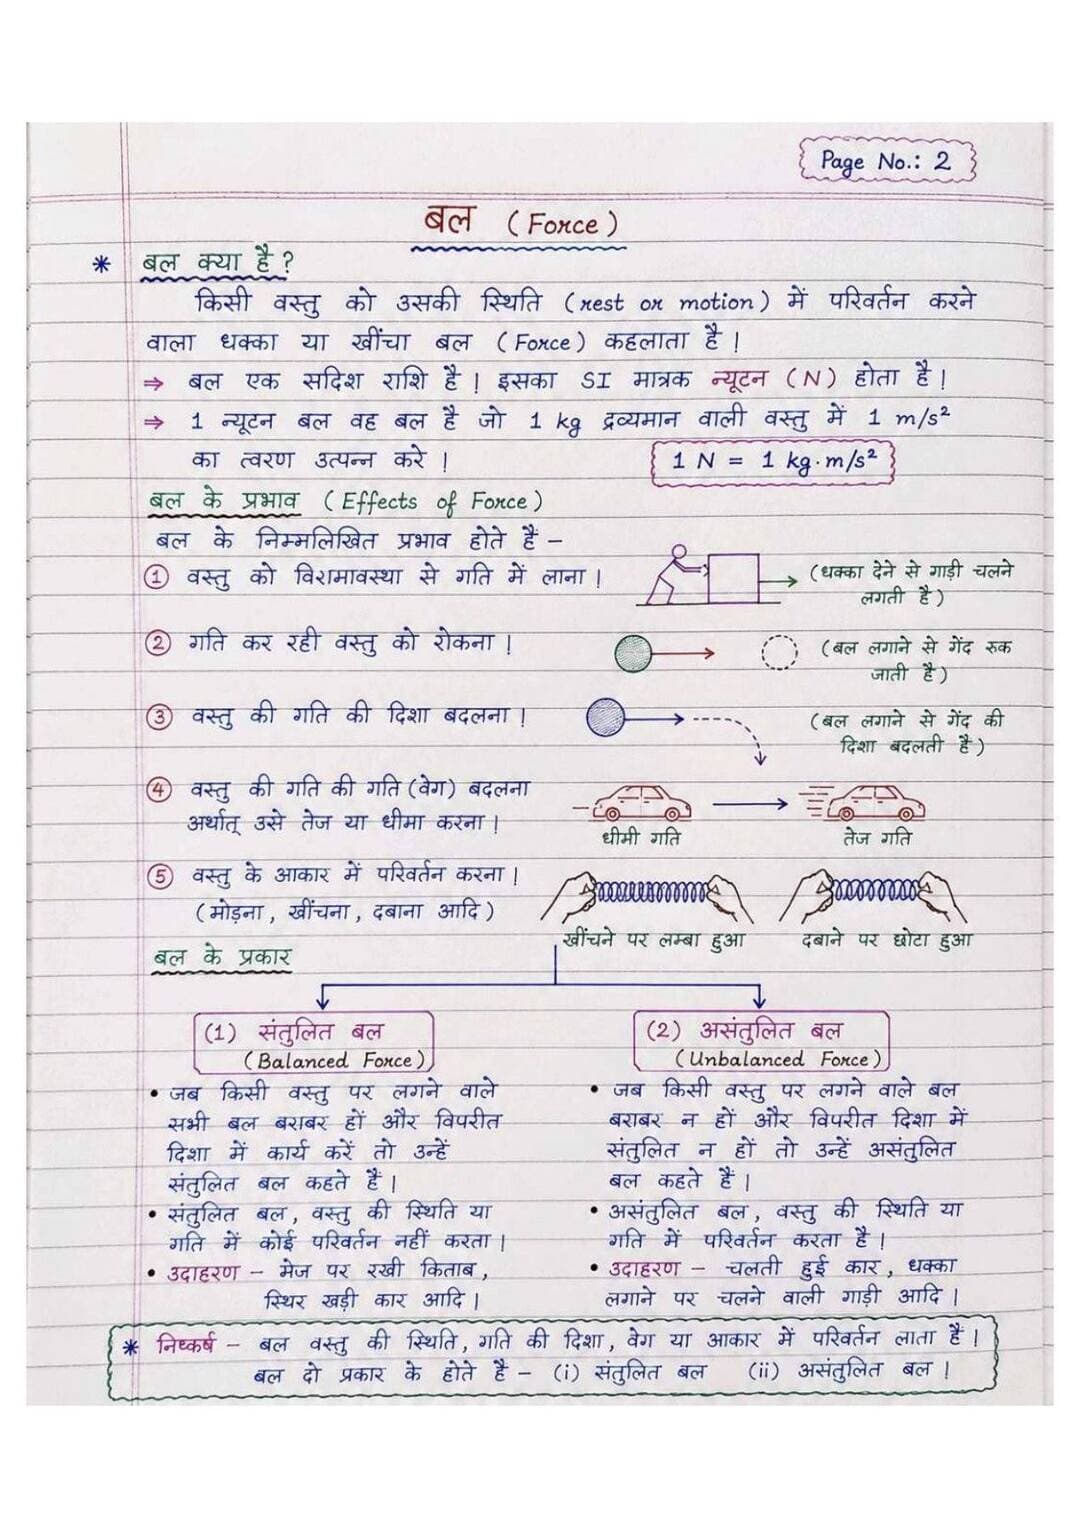 Page No.: 2
बल (Force)
* बल क्या है?
किसी वस्तु को उसकी स्थिति (rest or motion) में परिवर्तन करने
वाला धक्का या खींचा बल (Force) कहलाता है।
⇒ बल एक सदिश राशि है। इसका SI मात्रक न्यूटन (N) होता है।
⇒ 1 न्यूटन बल वह बल है जो 1 kg द्रव्यमान वाली वस्तु में 1 m/s²
का त्वरण उत्पन्न करे।
1 N = 1 kg·m/s²
बल के प्रभाव (Effects of Force)
बल के निम्मलिखित प्रभाव होते हैं –
① वस्तु को विरामावस्था से गति में लाना।
(धक्का देने से गाड़ी चलने
लगती है)
② गति कर रही वस्तु को रोकना।
(बल लगाने से गेंद रुक
जाती है)
③ वस्तु की गति की दिशा बदलना।
(बल लगाने से गेंद की
दिशा बदलती है)
④ वस्तु की गति की गति (वेग) बदलना
अर्थात् उसे तेज या धीमा करना।
धीमी गति
तेज गति
⑤ वस्तु के आकार में परिवर्तन करना।
(मोड़ना, खींचना, दबाना आदि)
खींचने पर लम्बा हुआ
दबाने पर छोटा हुआ
बल के प्रकार
(1) संतुलित बल
(Balanced Force)
• जब किसी वस्तु पर लगने वाले
सभी बल बराबर हों और विपरीत
दिशा में कार्य करें तो उन्हें
संतुलित बल कहते हैं।
• संतुलित बल, वस्तु की स्थिति या
गति में कोई परिवर्तन नहीं करता।
• उदाहरण – मेज पर रखी किताब,
स्थिर खड़ी कार आदि।
(2) असंतुलित बल
(Unbalanced Force)
• जब किसी वस्तु पर लगने वाले बल
बराबर न हों और विपरीत दिशा में
संतुलित न हों तो उन्हें असंतुलित
बल कहते हैं।
• असंतुलित बल, वस्तु की स्थिति या
गति में परिवर्तन करता है।
• उदाहरण – चलती हुई कार, धक्का
लगाने पर चलने वाली गाड़ी आदि।
* निष्कर्ष – बल वस्तु की स्थिति, गति की दिशा, वेग या आकार में परिवर्तन लाता है।
बल दो प्रकार के होते हैं – (i) संतुलित बल (ii) असंतुलित बल।